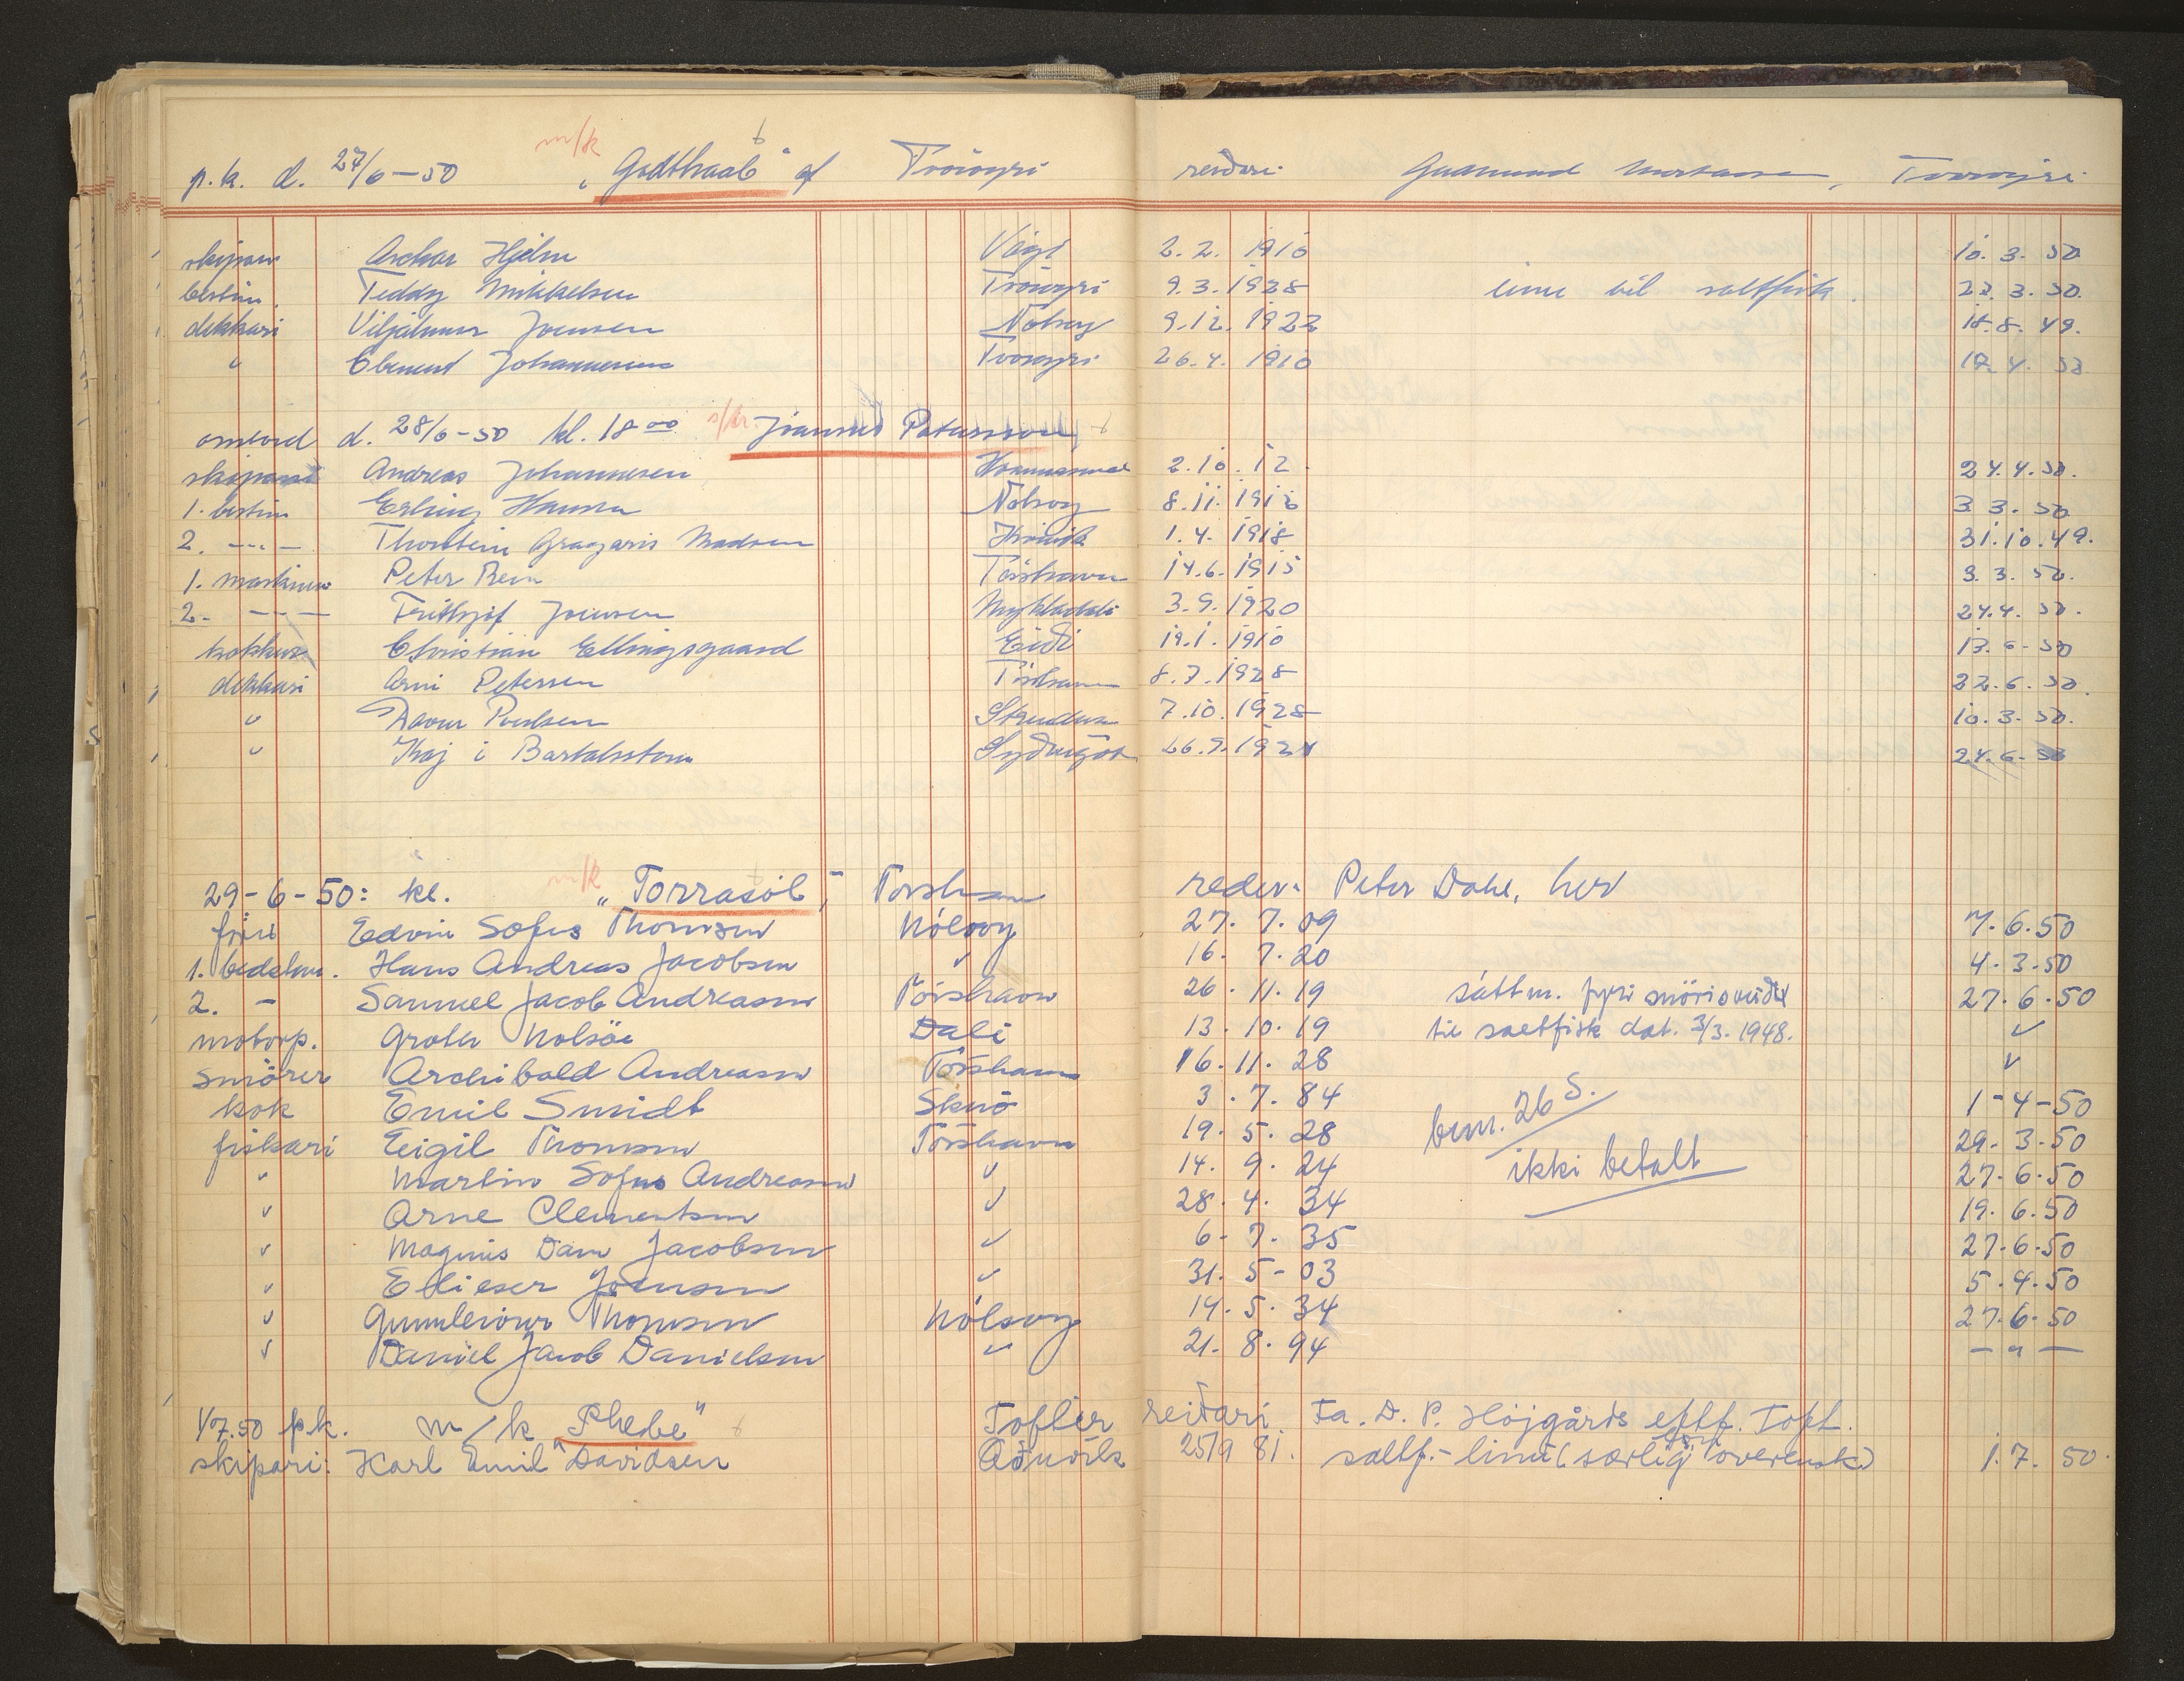 p.k. d. 27/6-50 m/k "Godthaab" af Tvöroyri reiðari Gudmund Mortensen, Tvöroyri
skipari Aschar Hjelm Vági 2.2. 1910 10.3.50
bestm. Teddy Mikkelsen Tvöroyri 9.3.1928 línu til saltfisk. 22.3.50.
dekkari Viljalmur Joensen Nolsoy 9.12.1922 18.8.49.
" Clement Johannesen Tvöroyri 26.4.1910 12.4.50
ombord d. 28/6-50 kl. 18 00 s/kr. Jóannes Patursson
skipari Andreas Johannesen 2.10.12. 24.4.50.
1. bestm Erling Hansen Nolsoy 8.11.1912 3.3.50
2. -"- Thorstein Gregaris Madsen Hvivík 1.4.1918 31.10.49.
1. maskinm Peter Rein Tórshavn 14.6.1915 3.3.50.
2. -"- Frithjof Joensen Mykladali 3.9.1920 24.4.50.
kokkur Christian Ellingsgaard Eiði 19.1.1910 13.6-50
dekkari Arni Petersen Tórshavn 8.7.1928 22.6.50.
" Davur Poulsen Strendur 7.10.1928 10.3.50.
" Kaj i Bartalsstovu Syðrugöta 26.9.1921 24.6-50
29-6-50: kl. m/k "Torrasól", Torshavn reder: Peter Dahl, her
förer Edvin Sofus Thomsen Nólsoy 27.7.09 7.6.50
1. bedstem. Hans Andreas Jacobsen " 16.7.20 4.3.50
2. - Samuel Jacob Andreasen Tórshavn 26.11.19 sáttm. fyri snöriveiði 27.6.50
motorp. Groth Nolsöe Dali 13.10.19 til saltfisk dat. 3/3.1948. "
smörer Archibald Andreasen Tórshavn 16.11.28 "
kok Emil Smidt Skuö 3.7.84 bem. 26 S. 1-4-50
fiskari Eigil Thomsen Tórshavn 19.5.28 29.3.50
" Martin Sofus Andreasen " 14.9.24 ikki betalt 27.6.50
" Arne Clementsen " 28.4.34 19.6.50
" Magnus Dam Jacobsen " 6-7.35 27.6.50
" Elieser Joensen " 31.5-03 5.4.50
" Gunnleivur Thomsen Nólsoy 14.5.34 27.6.50
" Daniel Jacob Danielsen " 21.8.94 -"-
1/7.50 p.k. m/k "Phebe" Toftir reiðari Fa. D.P. Höjgårds eftf. Toft.
skipari: Karl Emil Davidsen Æðuvík 25/9 81. saltf.-línu (særlig overensk.) 1.7.50.